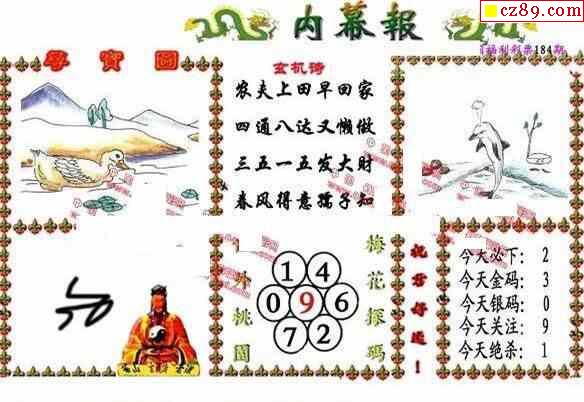 cz89.com
内幕報
福利彩票184期
尋寶圖
玄机诗
农夫上田早回家
四通八达又懒做
三五一五发大财
春风得意孺子知
梅花探码
1 4
0 9 6
7 2
桃園
祝君好运!
今天必下: 2
今天金码: 3
今天银码: 0
今天关注: 9
今天绝杀: 1